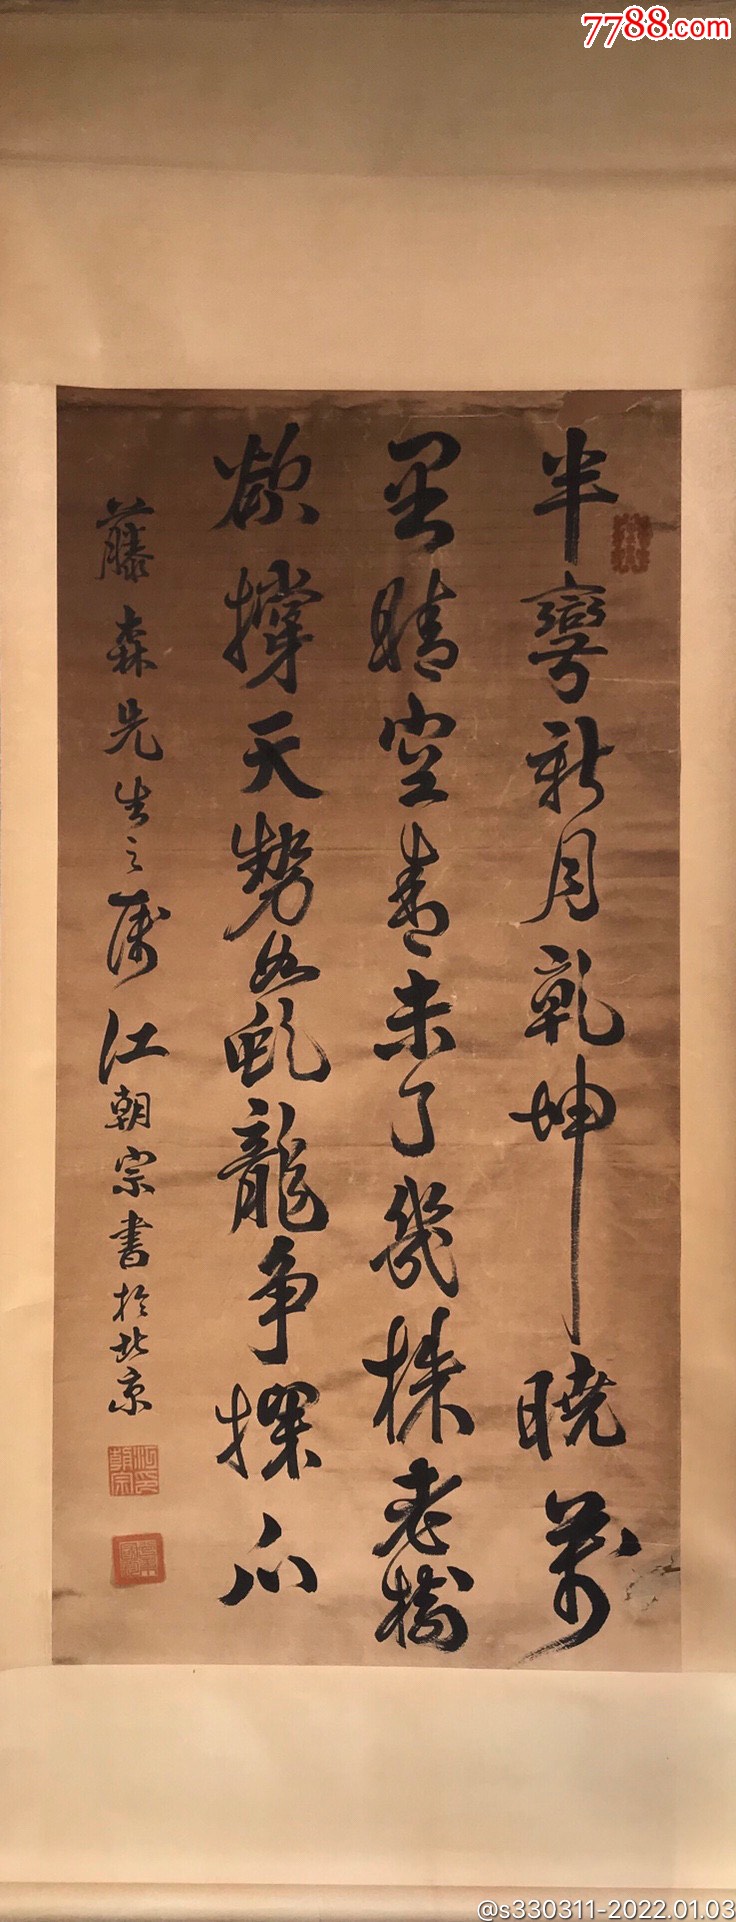 7788.com
半彎新月乾坤曉萬
里晴空青未了幾株老樹
欲撐天勢如虬龍爭探爪
藤森先生之属 江朝宗書於北京
江朝宗印
@s330311-2022.01.03